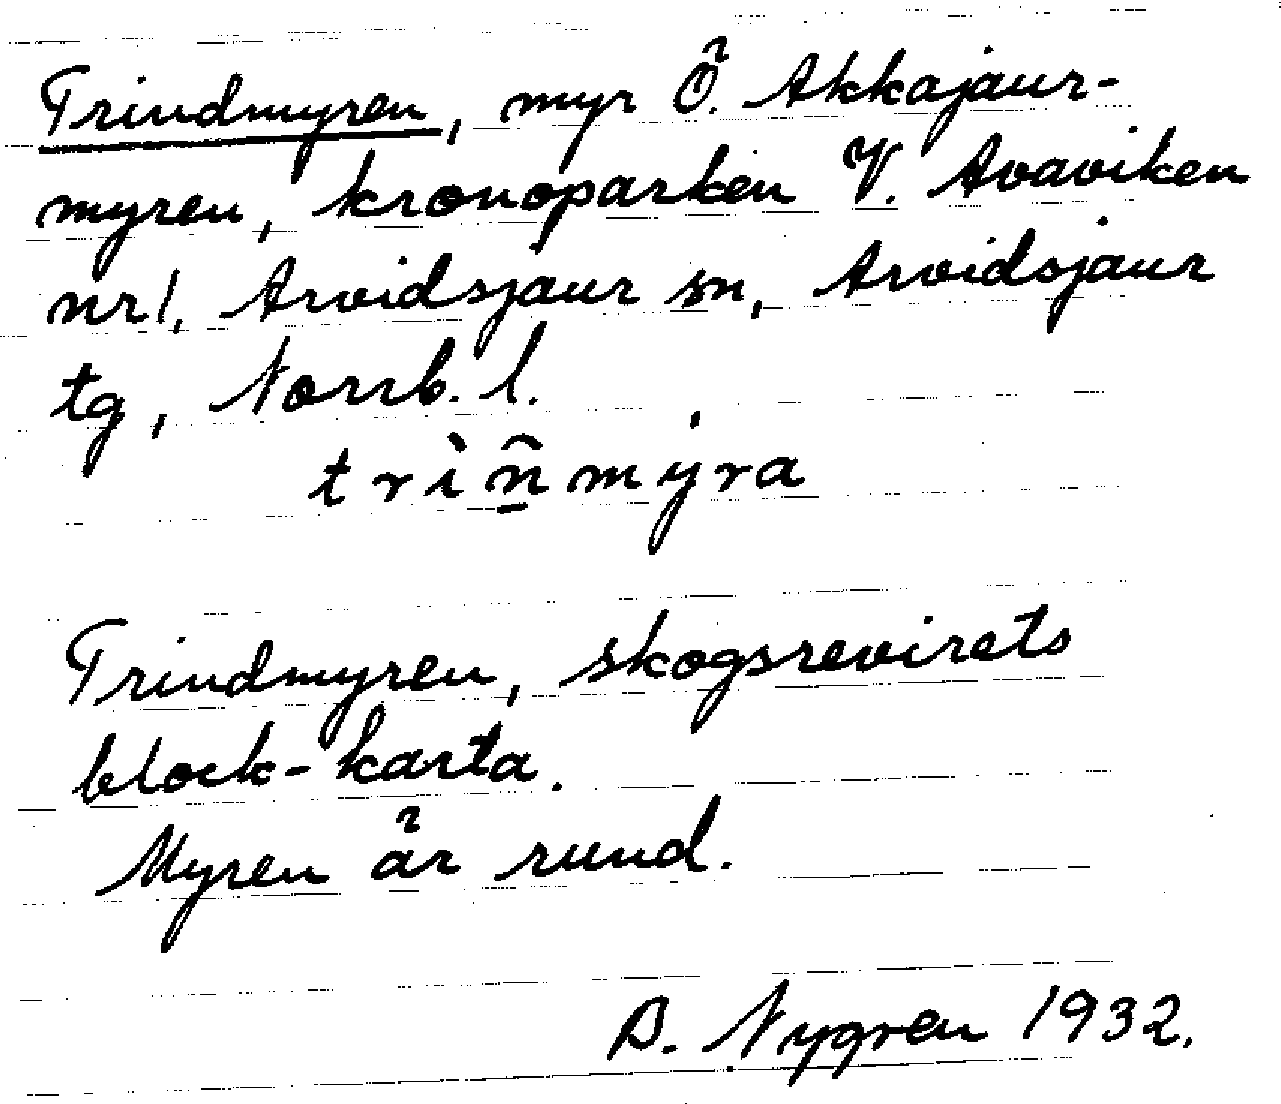 Trindmyren, myr Ö. Akkajaur-
myren, kronoparken V. Avaviken
nr 1, Arvidsjaur sn, Arvidsjaur
tg, Norrb. l.
trìñ̲mẏra
Trindmyren, skogsrevirets
block-karta.
Myren är rund.
B. Nygren 1932.